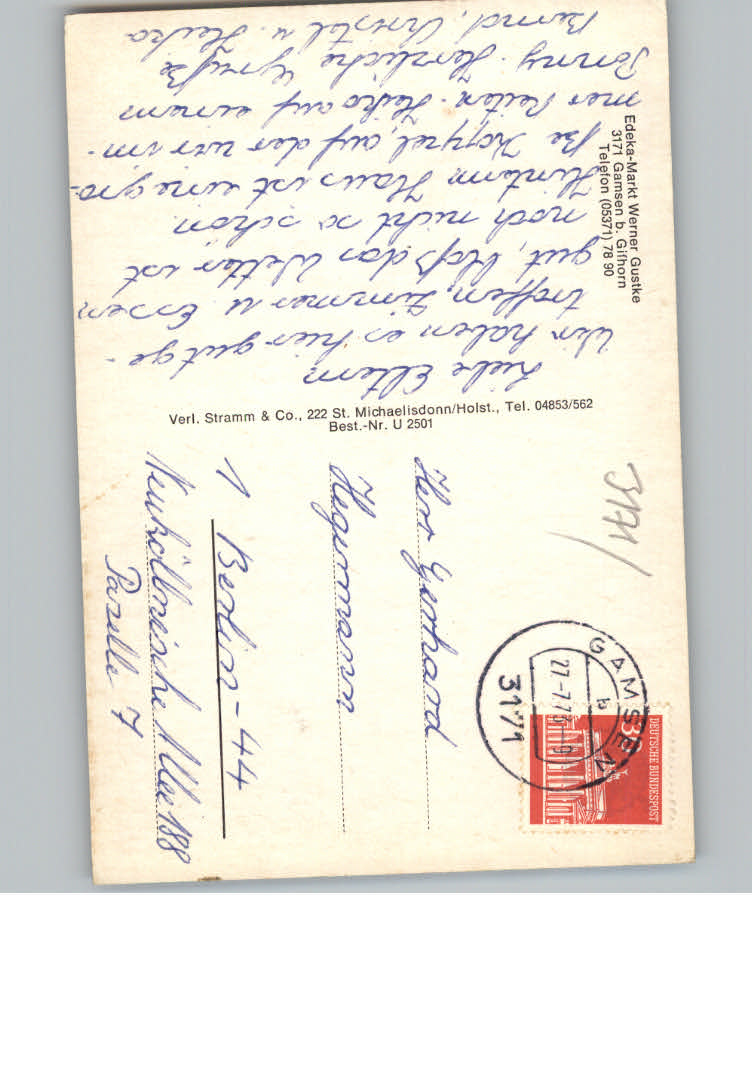 Edeka-Markt Werner Gustke
3171 Gamsen b. Gifhorn
Telefon (05371) 78 90
Liebe Eltern
Wir haben es hier gut ge-
troffen, Zimmer u. Essen
gut, bloß das Wetter ist
noch nicht so schön
Hinterm Haus ist eine gro-
ße Koppel, auf der wir im-
mer Reiten. Heiko auf einem
Ponny. Herzliche Grüße
Bernd, Christel u. Heiko
Verl. Stramm & Co., 222 St. Michaelisdonn/Holst., Tel. 04853/562
Best.-Nr. U 2501
3171
GAMSEN
b
3171
DEUTSCHE BUNDESPOST
Herr Gerhard
Hegermann
1 Berlin-44
Neuköllnische Allee 188
Pazelle 7